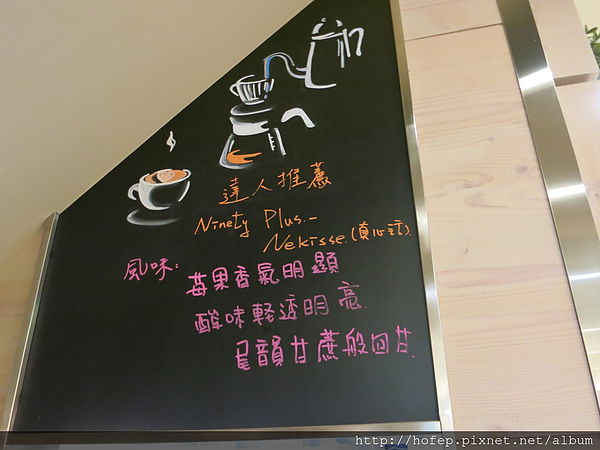 達人推薦
Ninety Plus.-
Nekisse.(真心話).
風味:
莓果香氣明顯
酸味輕透明亮.
尾韻甘蔗般回甘.
http://hofep.pixnet.net/album